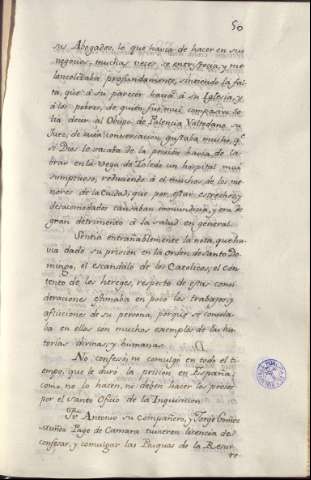 50
sus Abogados, le que havia de hacer en sus
negocios, muchas veces se entristecia, y me
lancolizaba profundamente, sintiendo la fal
ta, que à su parecer havia à su Iglesia, y
à los pobres, de quien fue mui compasivo. De
cia decia al Obispo de Palencia Valtodano su
Juez, de cuia conversacion gustaba mucho, qe.
si Dios le sacaba de la prision havia de la
brar en la Vega de Toledo un hospital mui
sumptuoso, reduciendo à el muchos de los me
nores de la Ciudad, que por estar estrechos, y
desacomodados causaban inmundicia, y eran de
gran detrimento à la salud en general.
Sentia entrañablemente la nota, que ha
via dado su prision en la orden de Santo Do
mingo, el escandalo de los Catolicos, el con
tento de los hereges, respecto de estas consi
deraciones estimaba en poco los trabajos, y
aflicciones de su persona, porque se consola
ba en ellos con muchos exemplos de las his
torias divinas, y humanas.
No confesó, ni comulgó en todo el ti
empo, que le duró la prision en España,
como no lo hacen, ni deben hacer los presos
por el Santo Oficio de la Inquisicion.
Fr. Antonio su Compañero, y Jorge Gomez
Muñoz Page de Camara tuvieron licencia de
confesar, y comulgar las Pasquas de la Resur
re